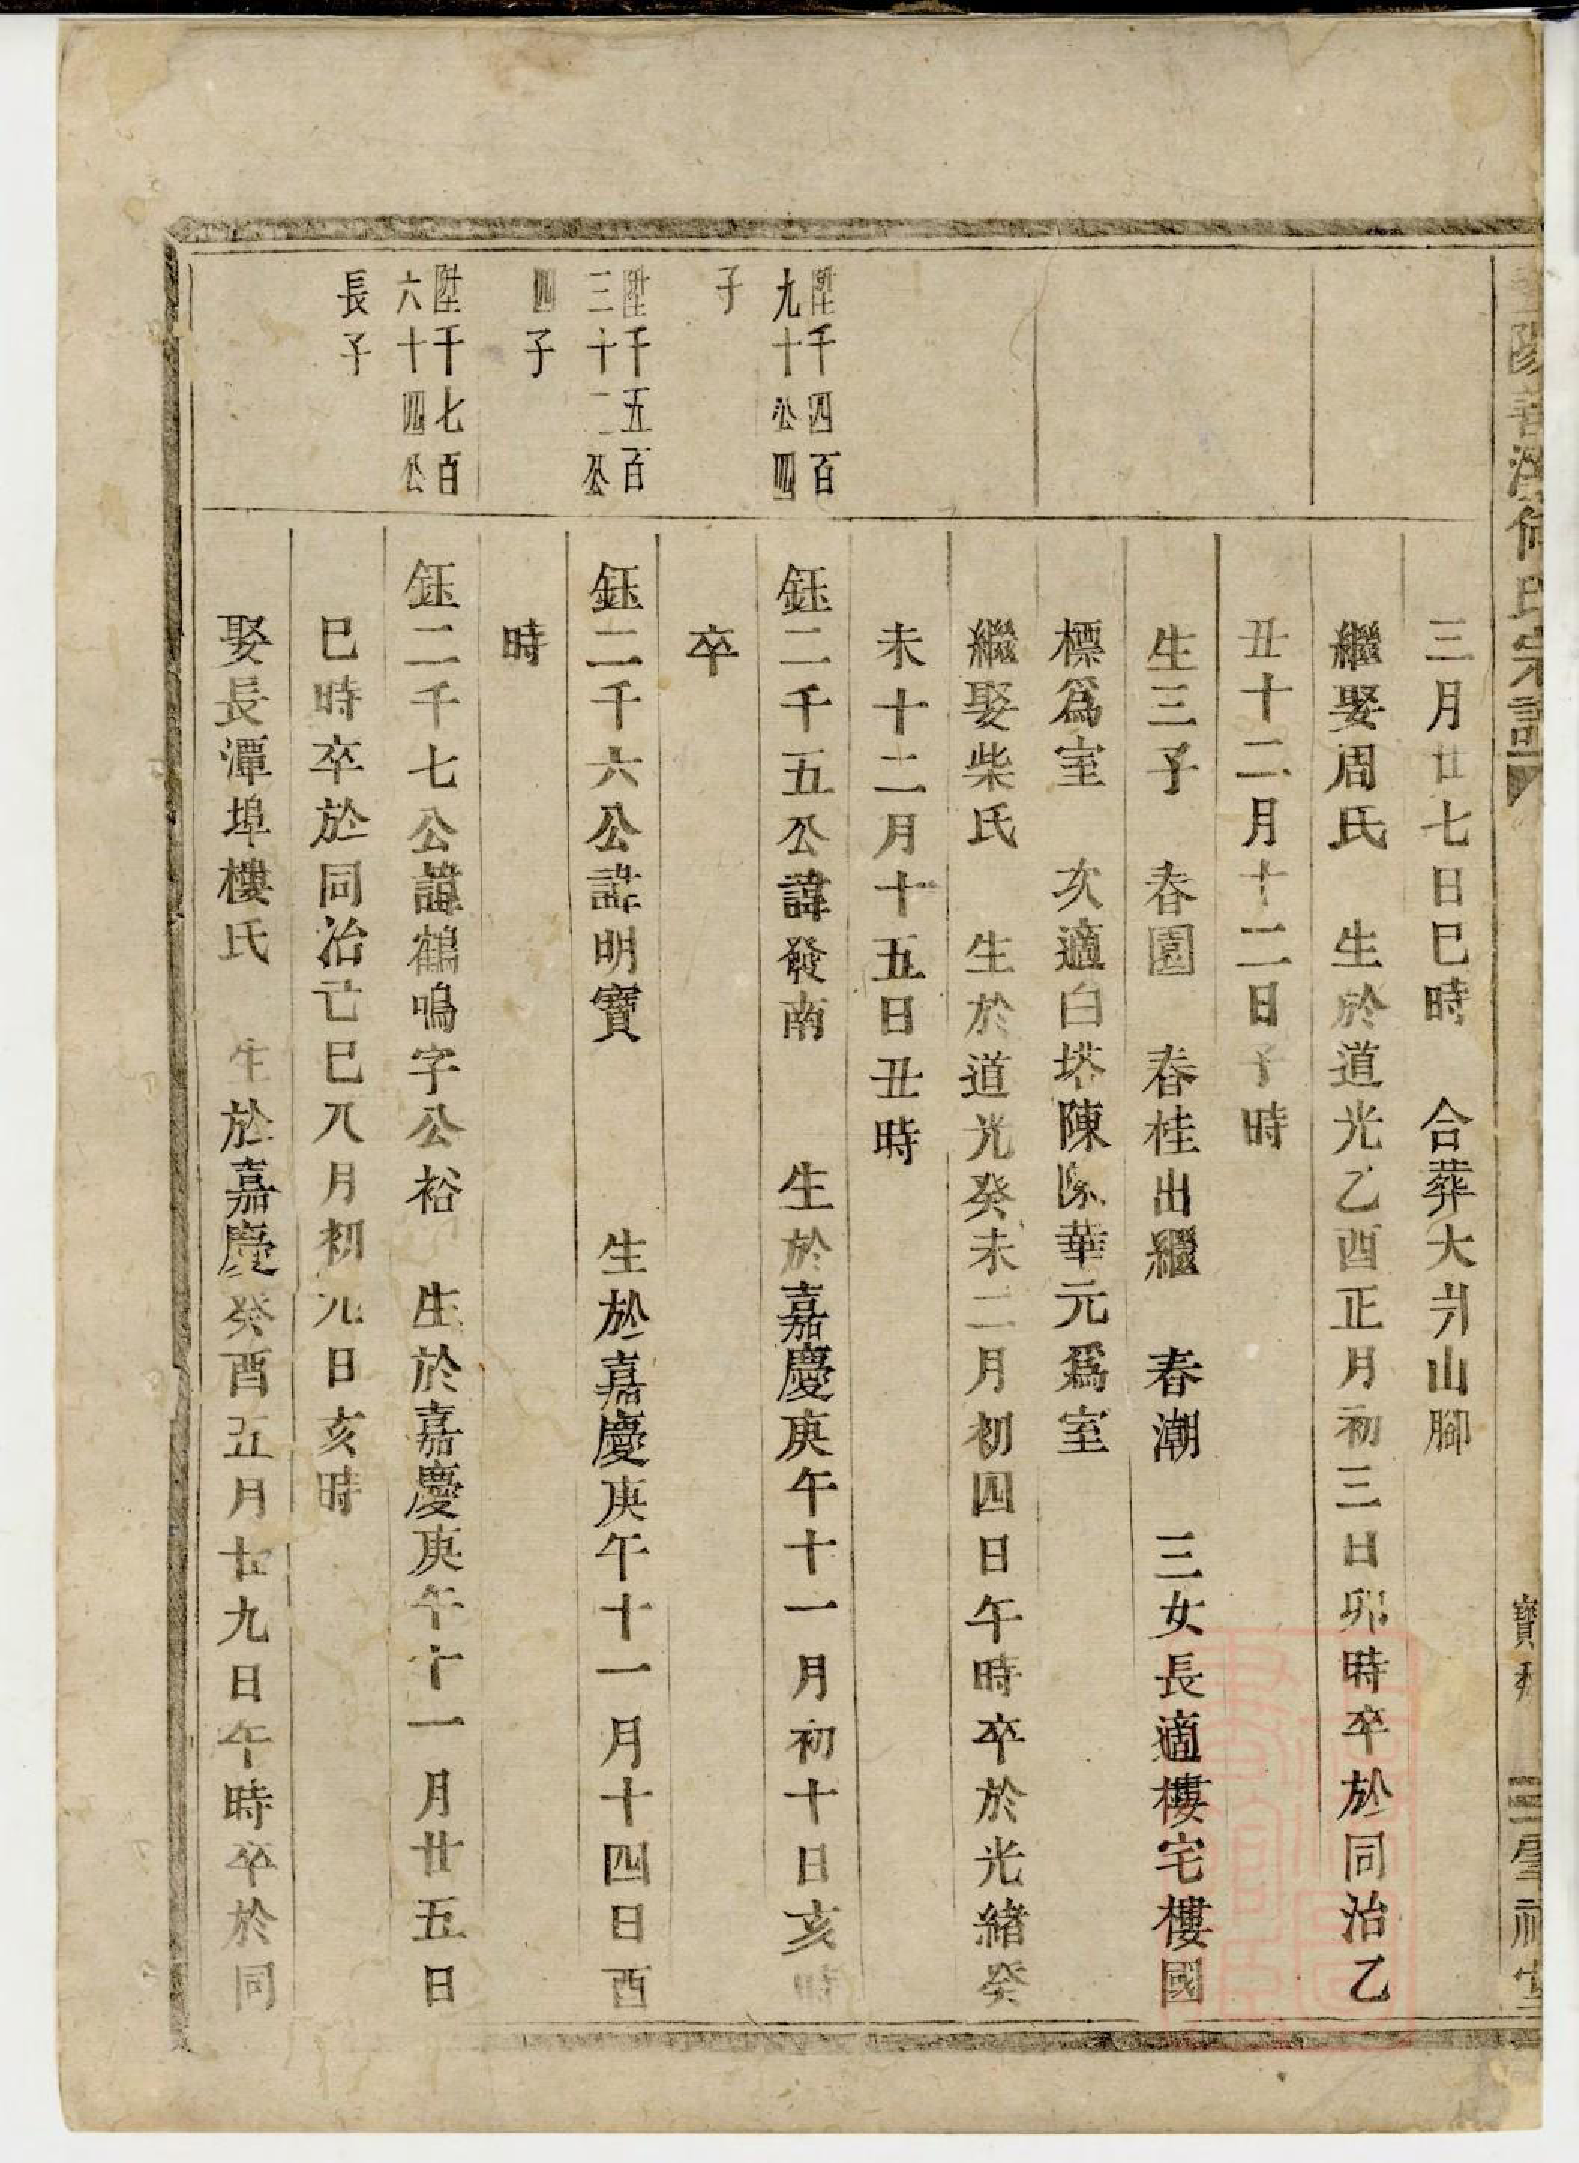 三月廿七日巳時　合葬大爿山腳
繼娶周氏　生於道光乙酉正月初三日卯時卒於同治乙
丑十二月十二日子時
生三子　春園　春桂出繼　春潮　三女長適樓宅樓國
標爲室　次適白塔陳陳華元爲室
繼娶柴氏　生於道光癸未二月初四日午時卒於光緒癸
未十二月十五日丑時
陞千四百
九十公四
子
鈺二千五公諱發南　生於嘉慶庚午十一月初十日亥時
卒
陞千五百
三十二公
四子
鈺二千六公諱明寶　生於嘉慶庚午十一月十四日酉
時
陞千七百
六十四公
長子
鈺二千七公諱鶴鳴字公裕　生於嘉慶庚午十一月廿五日
巳時卒於同治己巳八月初九日亥時
娶長潭埠樓氏　生於嘉慶癸酉五月廿九日午時卒於同